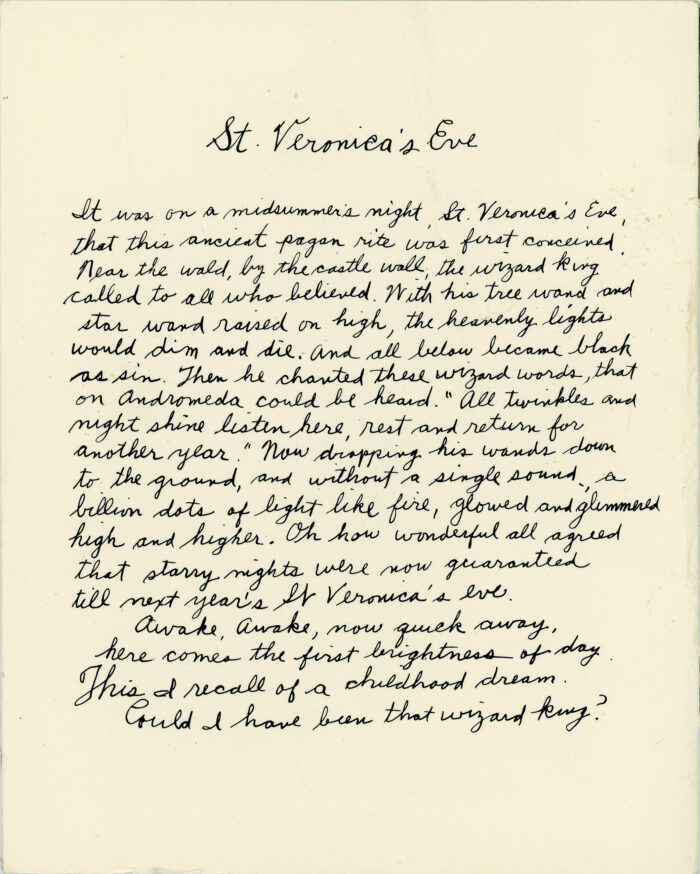 St. Veronica's Eve
It was on a midsummer's night, St. Veronica's Eve,
that this ancient pagan rite was first conceived.
Near the wald, by the castle wall, the wizard king
called to all who believed. With his tree wand and
star wand raised on high, the heavenly lights
would dim and die. And all below became black
as sin. Then he chanted these wizard words, that
on Andromeda could be heard. "All twinkles and
night shine listen here, rest and return for
another year." Now dropping his wands down
to the ground, and without a single sound, a
billion dots of light like fire, glowed and glimmered
high and higher. Oh how wonderful all agreed
that starry nights were now guaranteed
till next year's St Veronica's eve.
Awake, Awake, now quick away,
here comes the first brightness of day.
This I recall of a childhood dream.
Could I have been that wizard king?